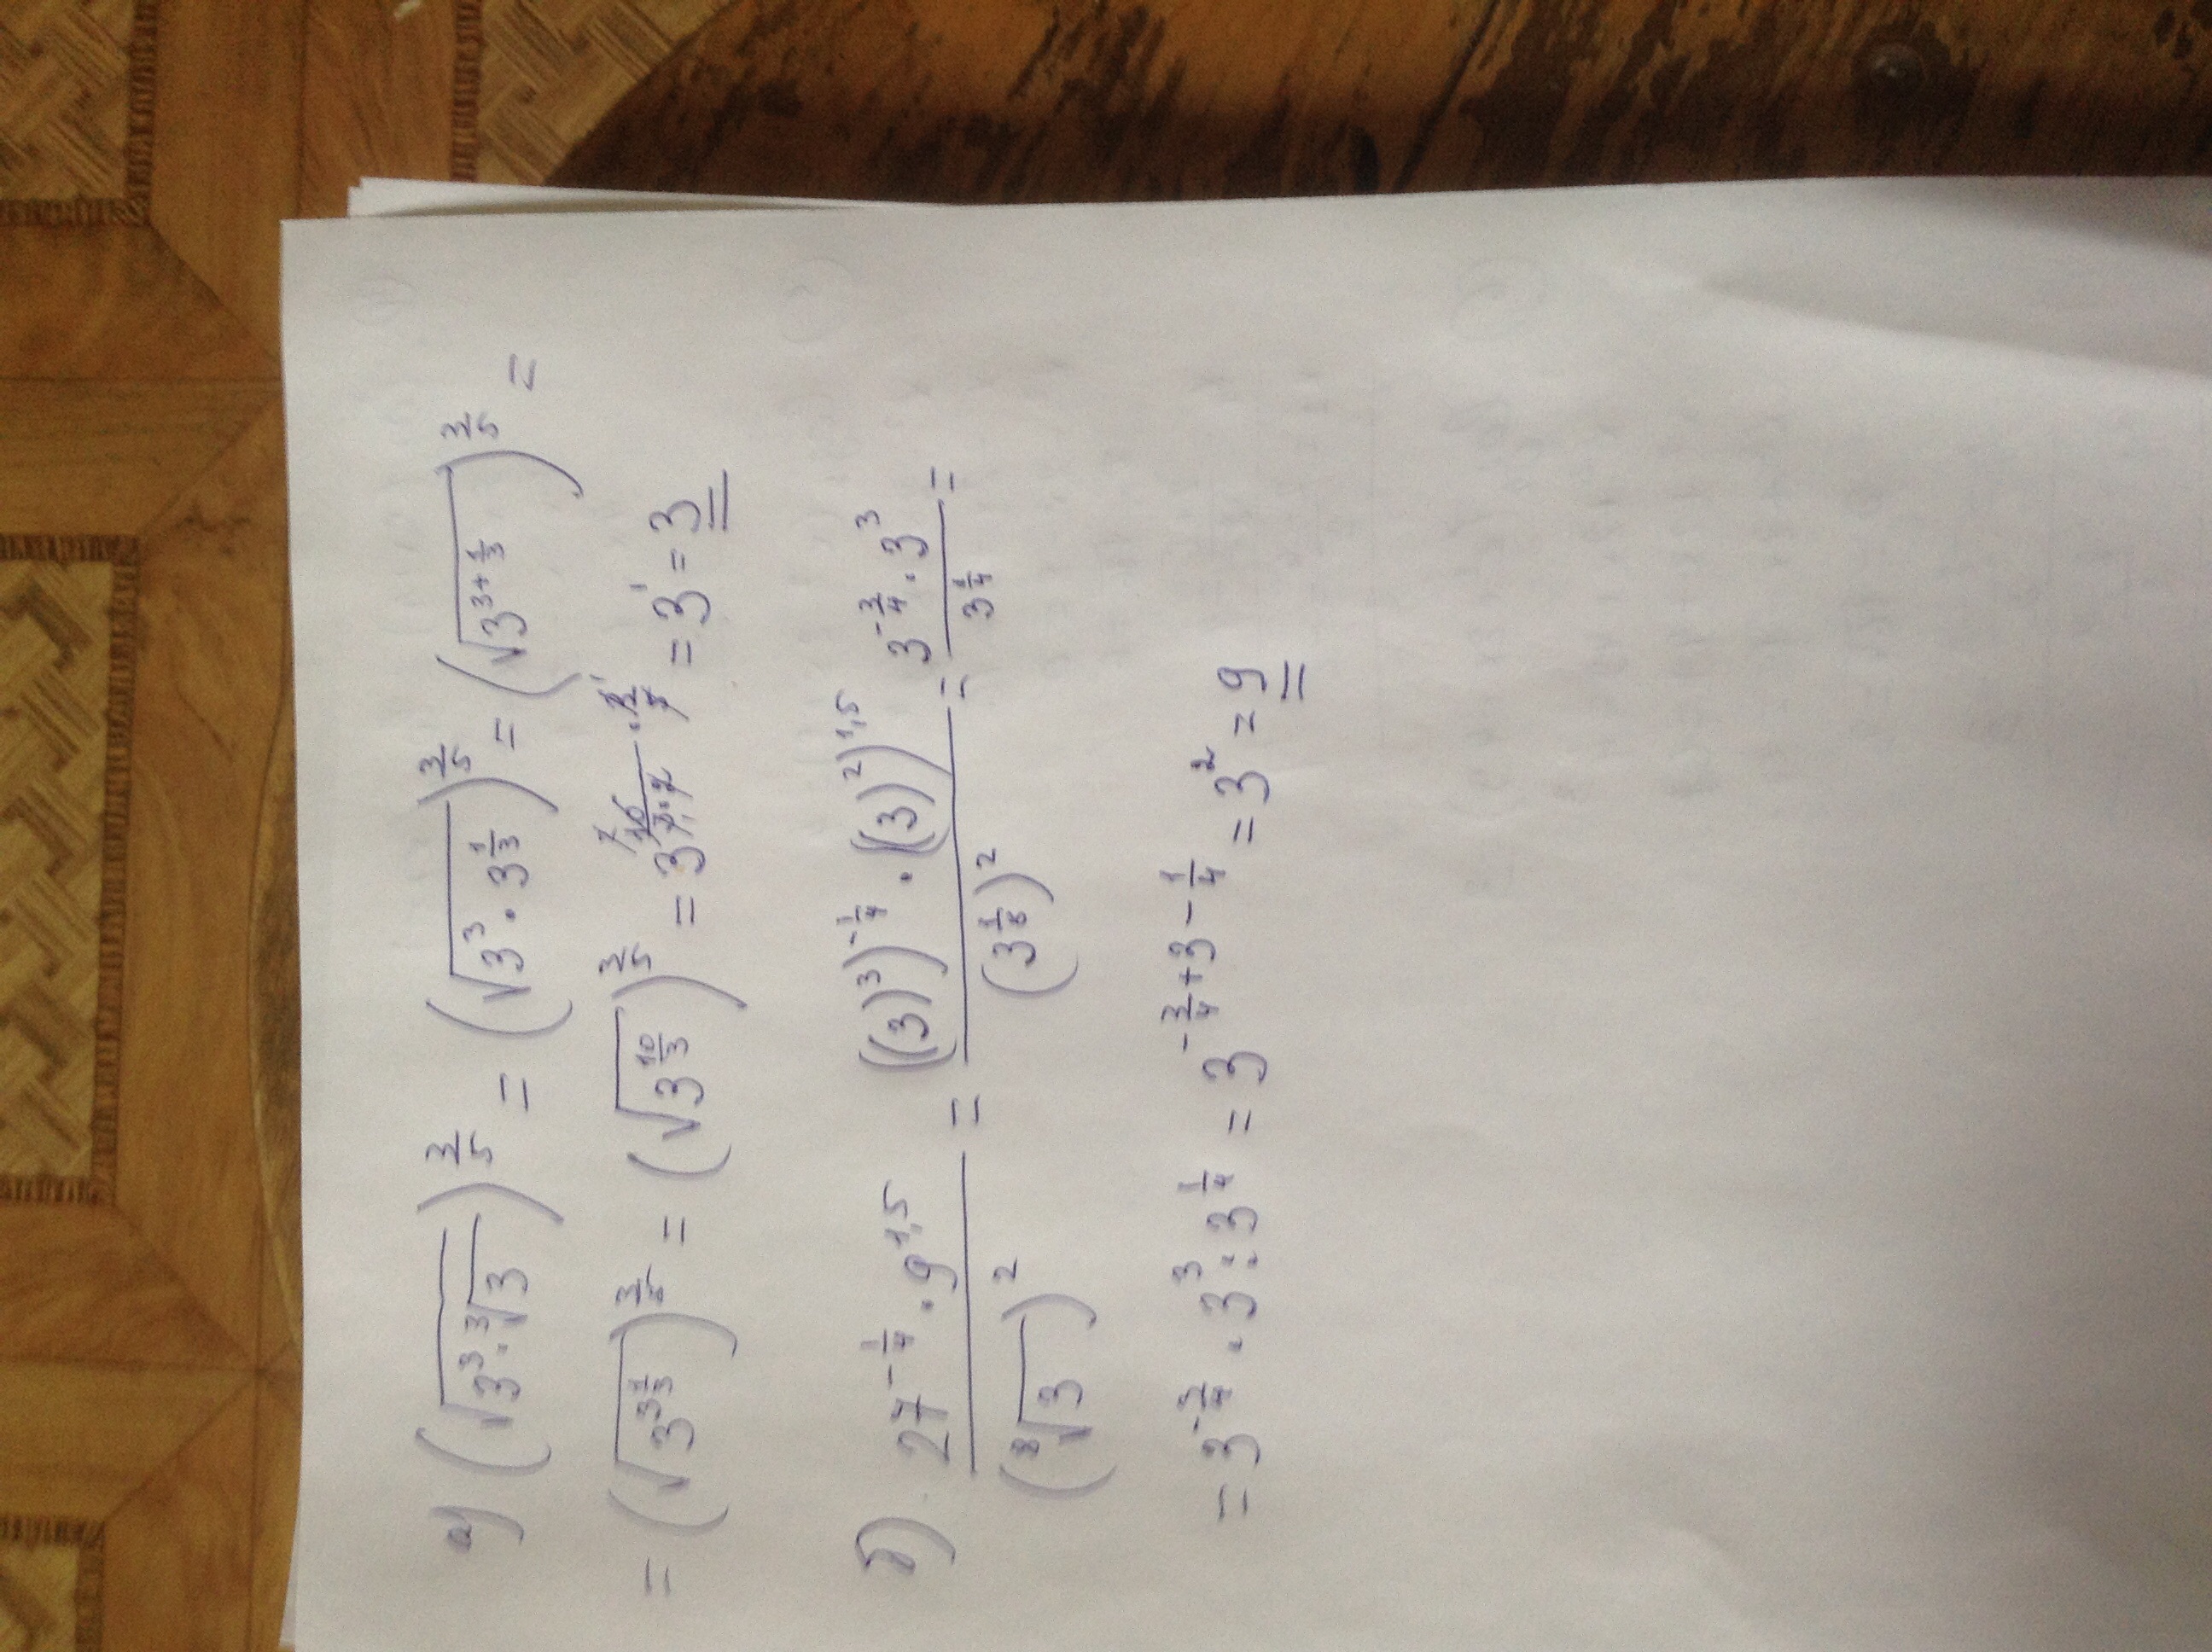 а) (√(3³·∛3))^(3/5) = (√(3³·3^(1/3)))^(3/5) = (√(3^(3+1/3)))^(3/5) =
= (√(3^(3 1/3)))^(3/5) = (√(3^(10/3)))^(3/5) = 3^(10/(3·2)·3/5) = 3¹ = 3
б) (27^(-1/4)·9^(1,5))/(⁸√3)² = (((3)³)^(-1/4)·((3)²)^(1,5))/(3^(1/8))² = (3^(-3/4)·3³)/3^(1/4) =
= 3^(-3/4)·3³:3^(1/4) = 3^(-3/4+3-1/4) = 3² = 9